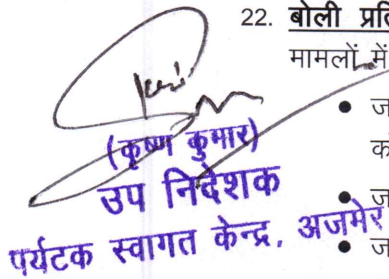 22. बोली
मामलों में
(कृष्ण कुमार)
उप निदेशक
पर्यटक स्वागत केन्द्र, अजमेर